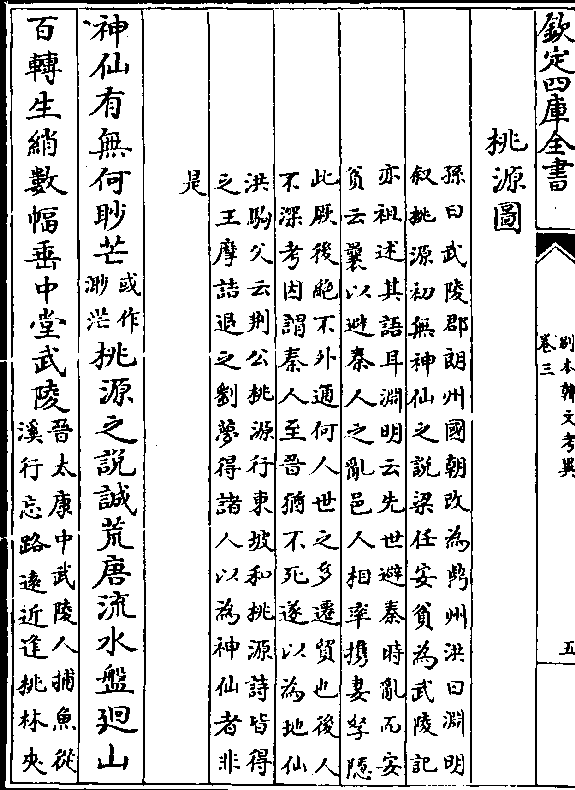 欽定四庫全書
別本韓文考異
卷三
五
桃源圖
孫曰武陵郡朗州國朝改為鼎州洪曰淵明
叙桃源初無神仙之說梁任安貧為武陵記
亦祖述其語耳淵明云先世避秦時亂而安
貧云曩以避秦人之亂邑人相率携妻孥隱
此厥後絶不外通何人世之多遷貿也後人
不深考因謂秦人至晉猶不死遂以為地仙
洪駒父云荆公桃源行東坡和桃源詩皆得
之王摩詰退之劉夢得諸人以為神仙者非
是
神仙有無何眇芒或作渺茫桃源之說誠荒唐流水盤廻山
百轉生綃數幅垂中堂武陵晉太康中武陵人捕魚從溪行忘路遠近逢桃林夾